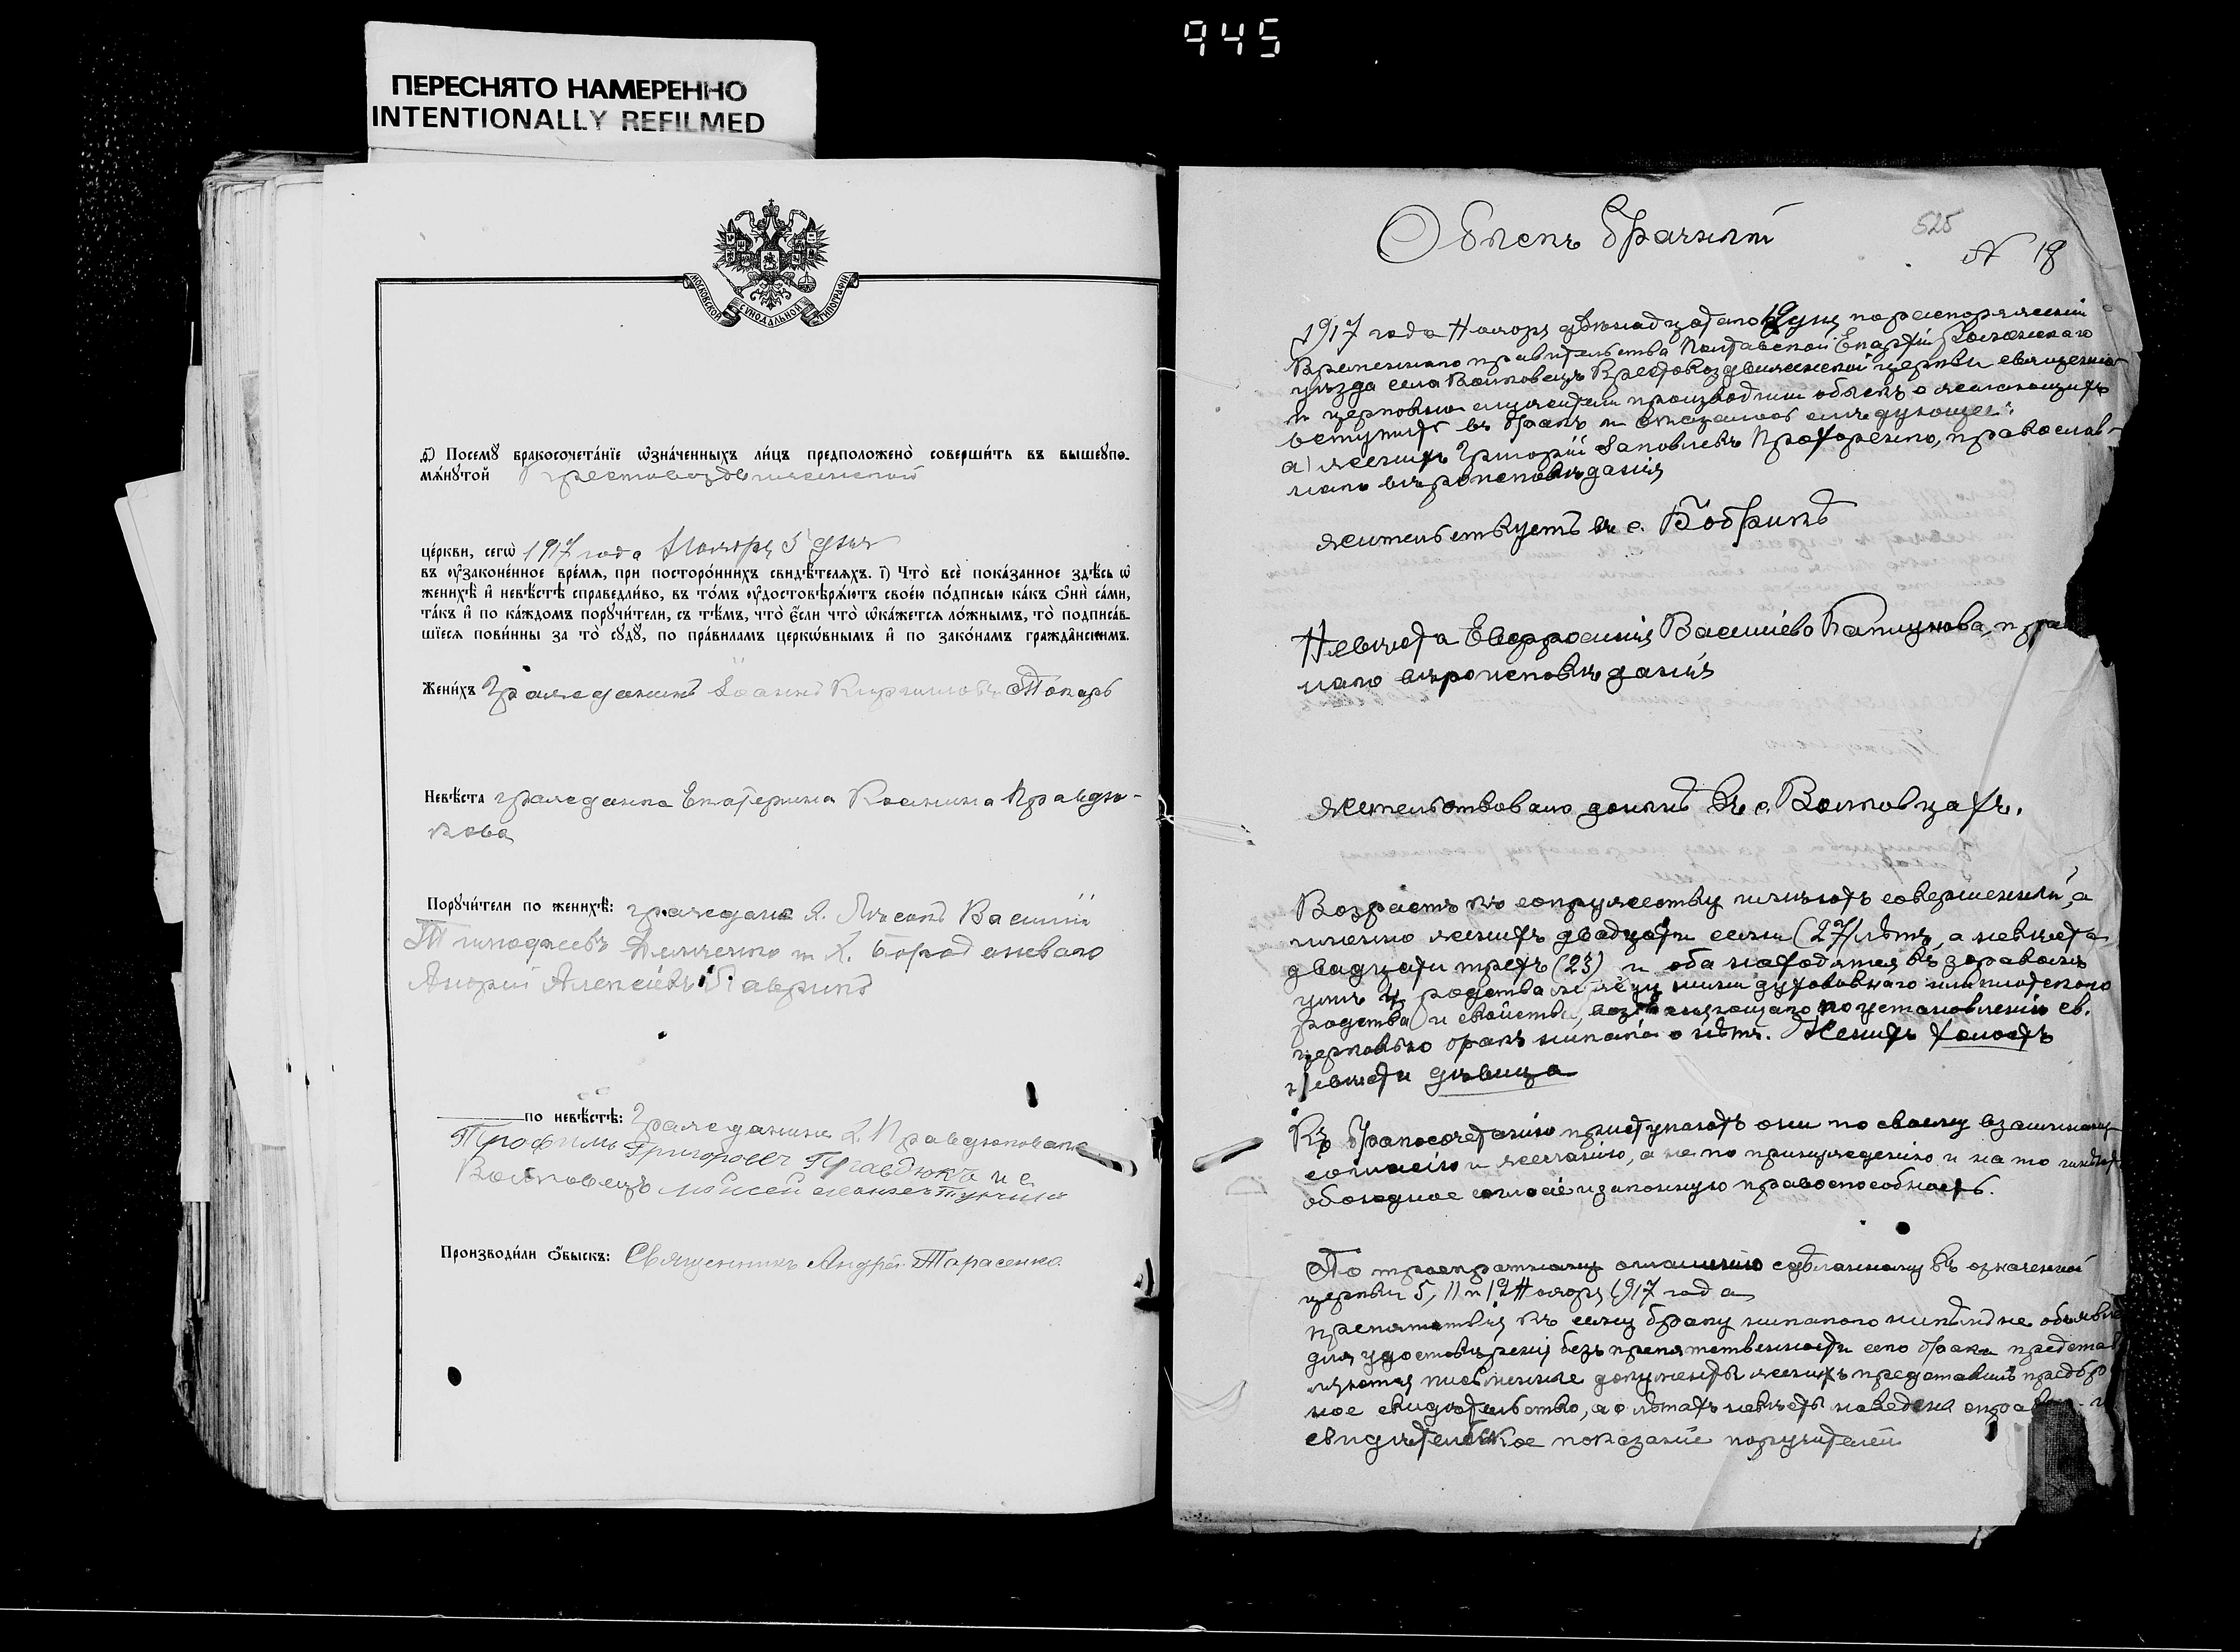 945
ПЕРЕСНЯТО НАМЕРЕННО
INTENTIONALLY REFILMED
МОСКОВСКОЙ СѴНОДАЛЬНОЙ ТИПОГРАФІИ
Посемꙋ бракосочета́нїе ѡзна́ченныхъ ли́цъ предположено̀ соверши́ть въ вышеꙋпо-
мѧ́нꙋтой Крестовоздвиженской
це́ркви, сегѡ̀ 1917 года Ноября 5 дня
въ ᲂу҆законе́нное вре́мѧ, при посторо́ннихъ свидѣ́телѧхъ. і҃) Что̀ всѐ пока́занное здѣ́сь ѡ҆
женихѣ̀ и҆ невѣ́стѣ справедли́во, въ то́мъ ᲂу҆достовѣрѧ́ютъ свое́ю по́дписью ка́къ ѻ҆нѝ са́ми,
та́къ и҆ по ка́ждомъ порꙋчи́тели, съ тѣ́мъ, что̀ є҆́сли что̀ ѡ҆ка́жетсѧ ло́жнымъ, то̀ подписа́в-
шїесѧ пови́нны за то̀ сꙋдꙋ̀, по пра́виламъ церкѡ́внымъ и҆ по зако́намъ гражда́нскимъ.
Жени́хъ Гражданинъ Іоаннъ Кирилловъ Токарь
Невѣ́ста гражданка Екатерина Правдю-
кова
Порꙋчи́тели по женихѣ̀: граждане Х. Лысик Василій
Тимофеевъ Демченко и Х.
Андрей Алексіевъ Гаврикъ
по невѣ́стѣ: Гражданинъ Х. Правдюковка
Трофимъ Григорьевъ Правдюкъ и с.
Волковецъ Моисей
Производи́ли ѻ҆́быскъ: Священникъ Андрей Тарасенко
525
Обыскъ брачный
N 18
1917 года Ноября двѣнадцатаго 12 дня по распоряженію
Временнаго правительства Полтавской Епархіи Роменскаго
уѣзда села Волковецъ Крестовоздвиженской церкви священно
и церковно служители производили обыскъ о желающихъ
вступить въ бракъ и оказалось слѣдующее:
а) женихъ Григорій Іаковлевъ Прохоренко, православ-
наго вѣроисповѣданія
жительствуетъ въ с. Бобрикѣ
Невѣста Евфросинія Васильева, пра
наго вѣроисповѣданія
жительствовало донынѣ въ с. Волковцахъ.
Возрастъ къ сопружеству имѣютъ совершенный, а
именно женихъ двадцати семи (27) лѣтъ, а невѣста
двадцати трехъ (23) и оба находятся въ здравомъ
умѣ и родства между ними духовнаго или плотскаго
родства и свойства, возбраняющаго по установленію св.
церковью бракъ никакого нѣтъ. Женихъ холостъ
невѣста дѣвица
Къ бракосочетанію приступаютъ они по своему взаимному
согласію и желанію, а не по принужденію и на то имѣютъ
обоюдное согласіе и законную правоспособность.
По троекратному оглашенію сдѣланному въ означенной
церкви 5, 11 и 12 Ноября 1917 года
препятствія къ сему браку никакого никѣмъ не объявле
для удостовѣренія безпрепятственности сего брака представ
ляются письменные документы женихъ представилъ предбра
ное свидѣтельство, а о лѣтахъ невѣсты наведена справка и
свидѣтельское показаніе поручителей